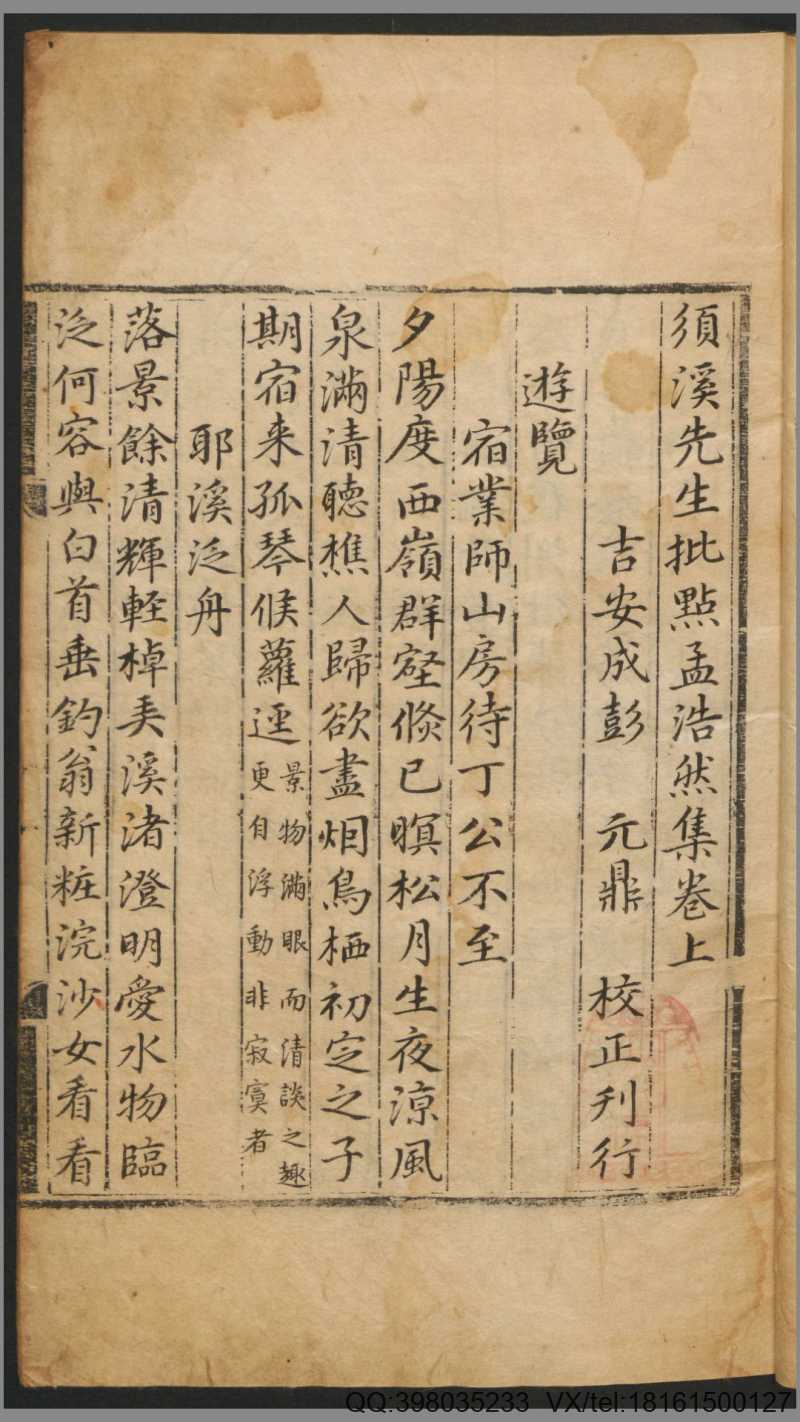 須溪先生批點孟浩然集卷上
吉安成彭 元鼎 校正刋行
遊覽
宿業師山房待丁公不至
夕陽度西嶺群壑倏已暝松月生夜涼風
泉滿清聽樵人歸欲盡烟鳥栖初定之子
期宿来孤琴候蘿逕景物滿眼而清談之趣
更自浮動非寂寞者
耶溪泛舟
落景餘清輝輕棹弄溪渚澄明愛水物臨
泛何容與白首垂釣翁新粧浣沙女看看
QQ:398035233 VX/tel:18161500127